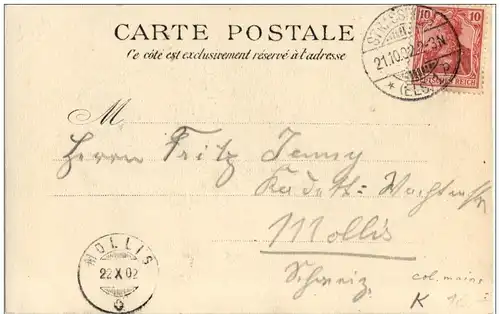 CARTE POSTALE
Ce côté est exclusivement réservé à l'adresse
STRASSBURG
21.10.02. 2-3N
* (ELS)
10 10
REICH
M
Herrn Fritz Jenny
Kadett-
Mollis
Schweiz.
MOLLIS
22 X 02
col. maine
K